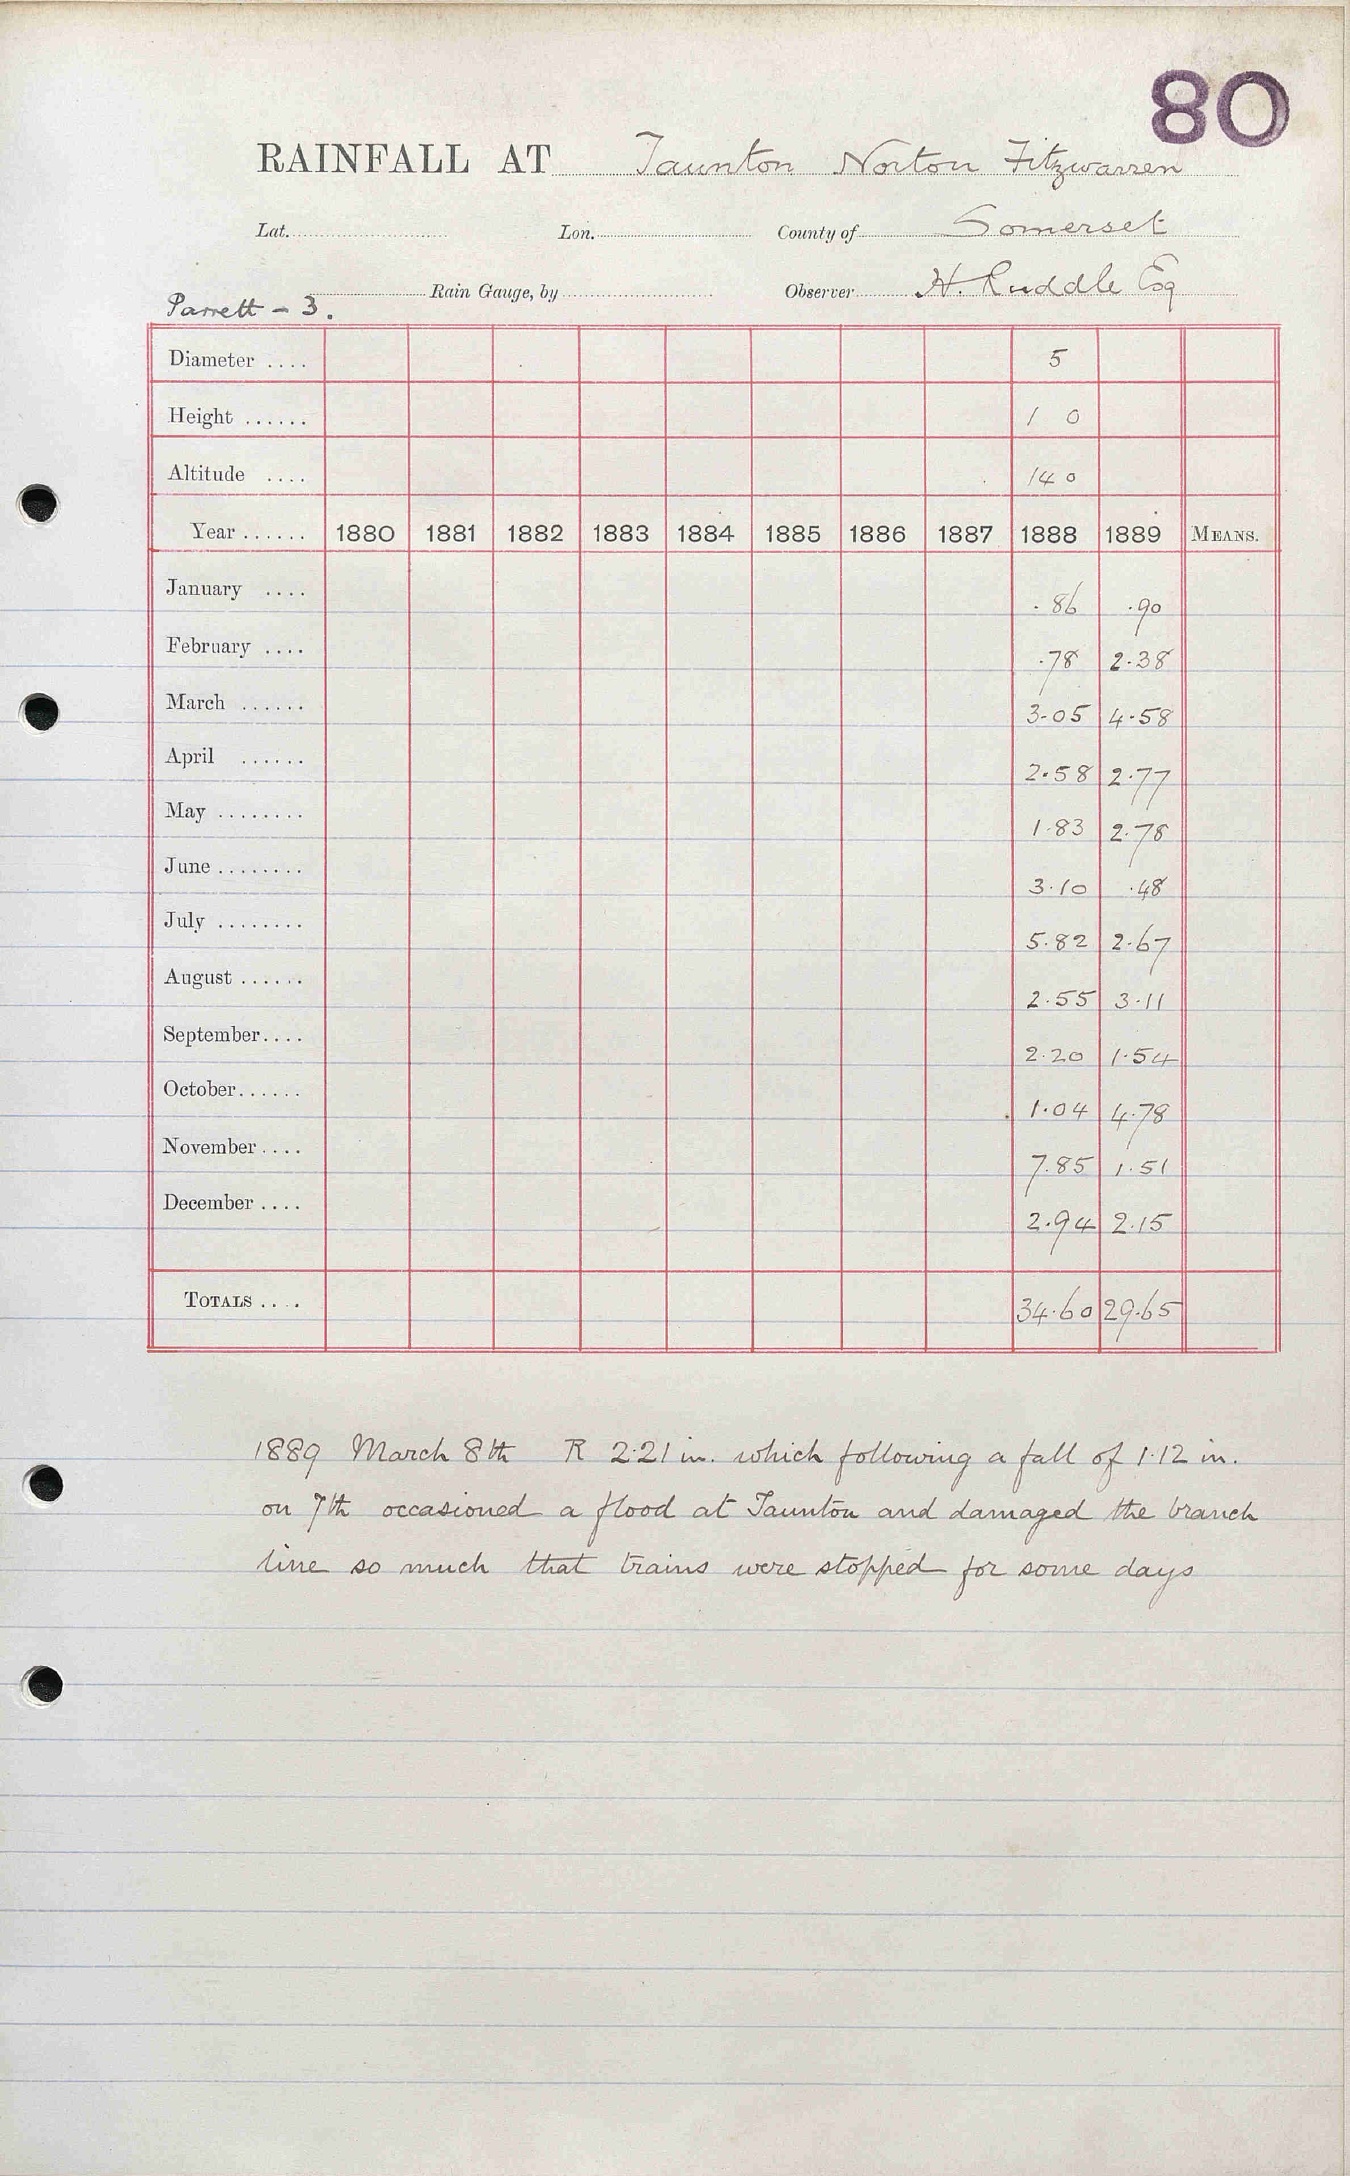 80
RAINFALL AT Taunton Norton Fitzwarren
Lat. Lon. County of Somerset
Rain Gauge, by Observer H. Ruddle Esq
Parrett - 3.
Diameter .... 5
Height ...... 1 0
Altitude .... 140
Year ...... 1880 1881 1882 1883 1884 1885 1886 1887 1888 1889 MEANS.
January .... .86 .90
February .... .78 2.38
March ...... 3.05 4.58
April ...... 2.58 2.77
May ........ 1.83 2.78
June ........ 3.10 .48
July ........ 5.82 2.67
August ...... 2.55 3.11
September.... 2.20 1.54
October...... 1.04 4.78
November.... 7.85 1.51
December .... 2.94 2.15
TOTALS .... 34.60 29.65
1889 March 8th R 2.21 in. which following a fall of 1.12 in.
on 7th occasioned a flood at Taunton and damaged the branch
line so much that trains were stopped for some days